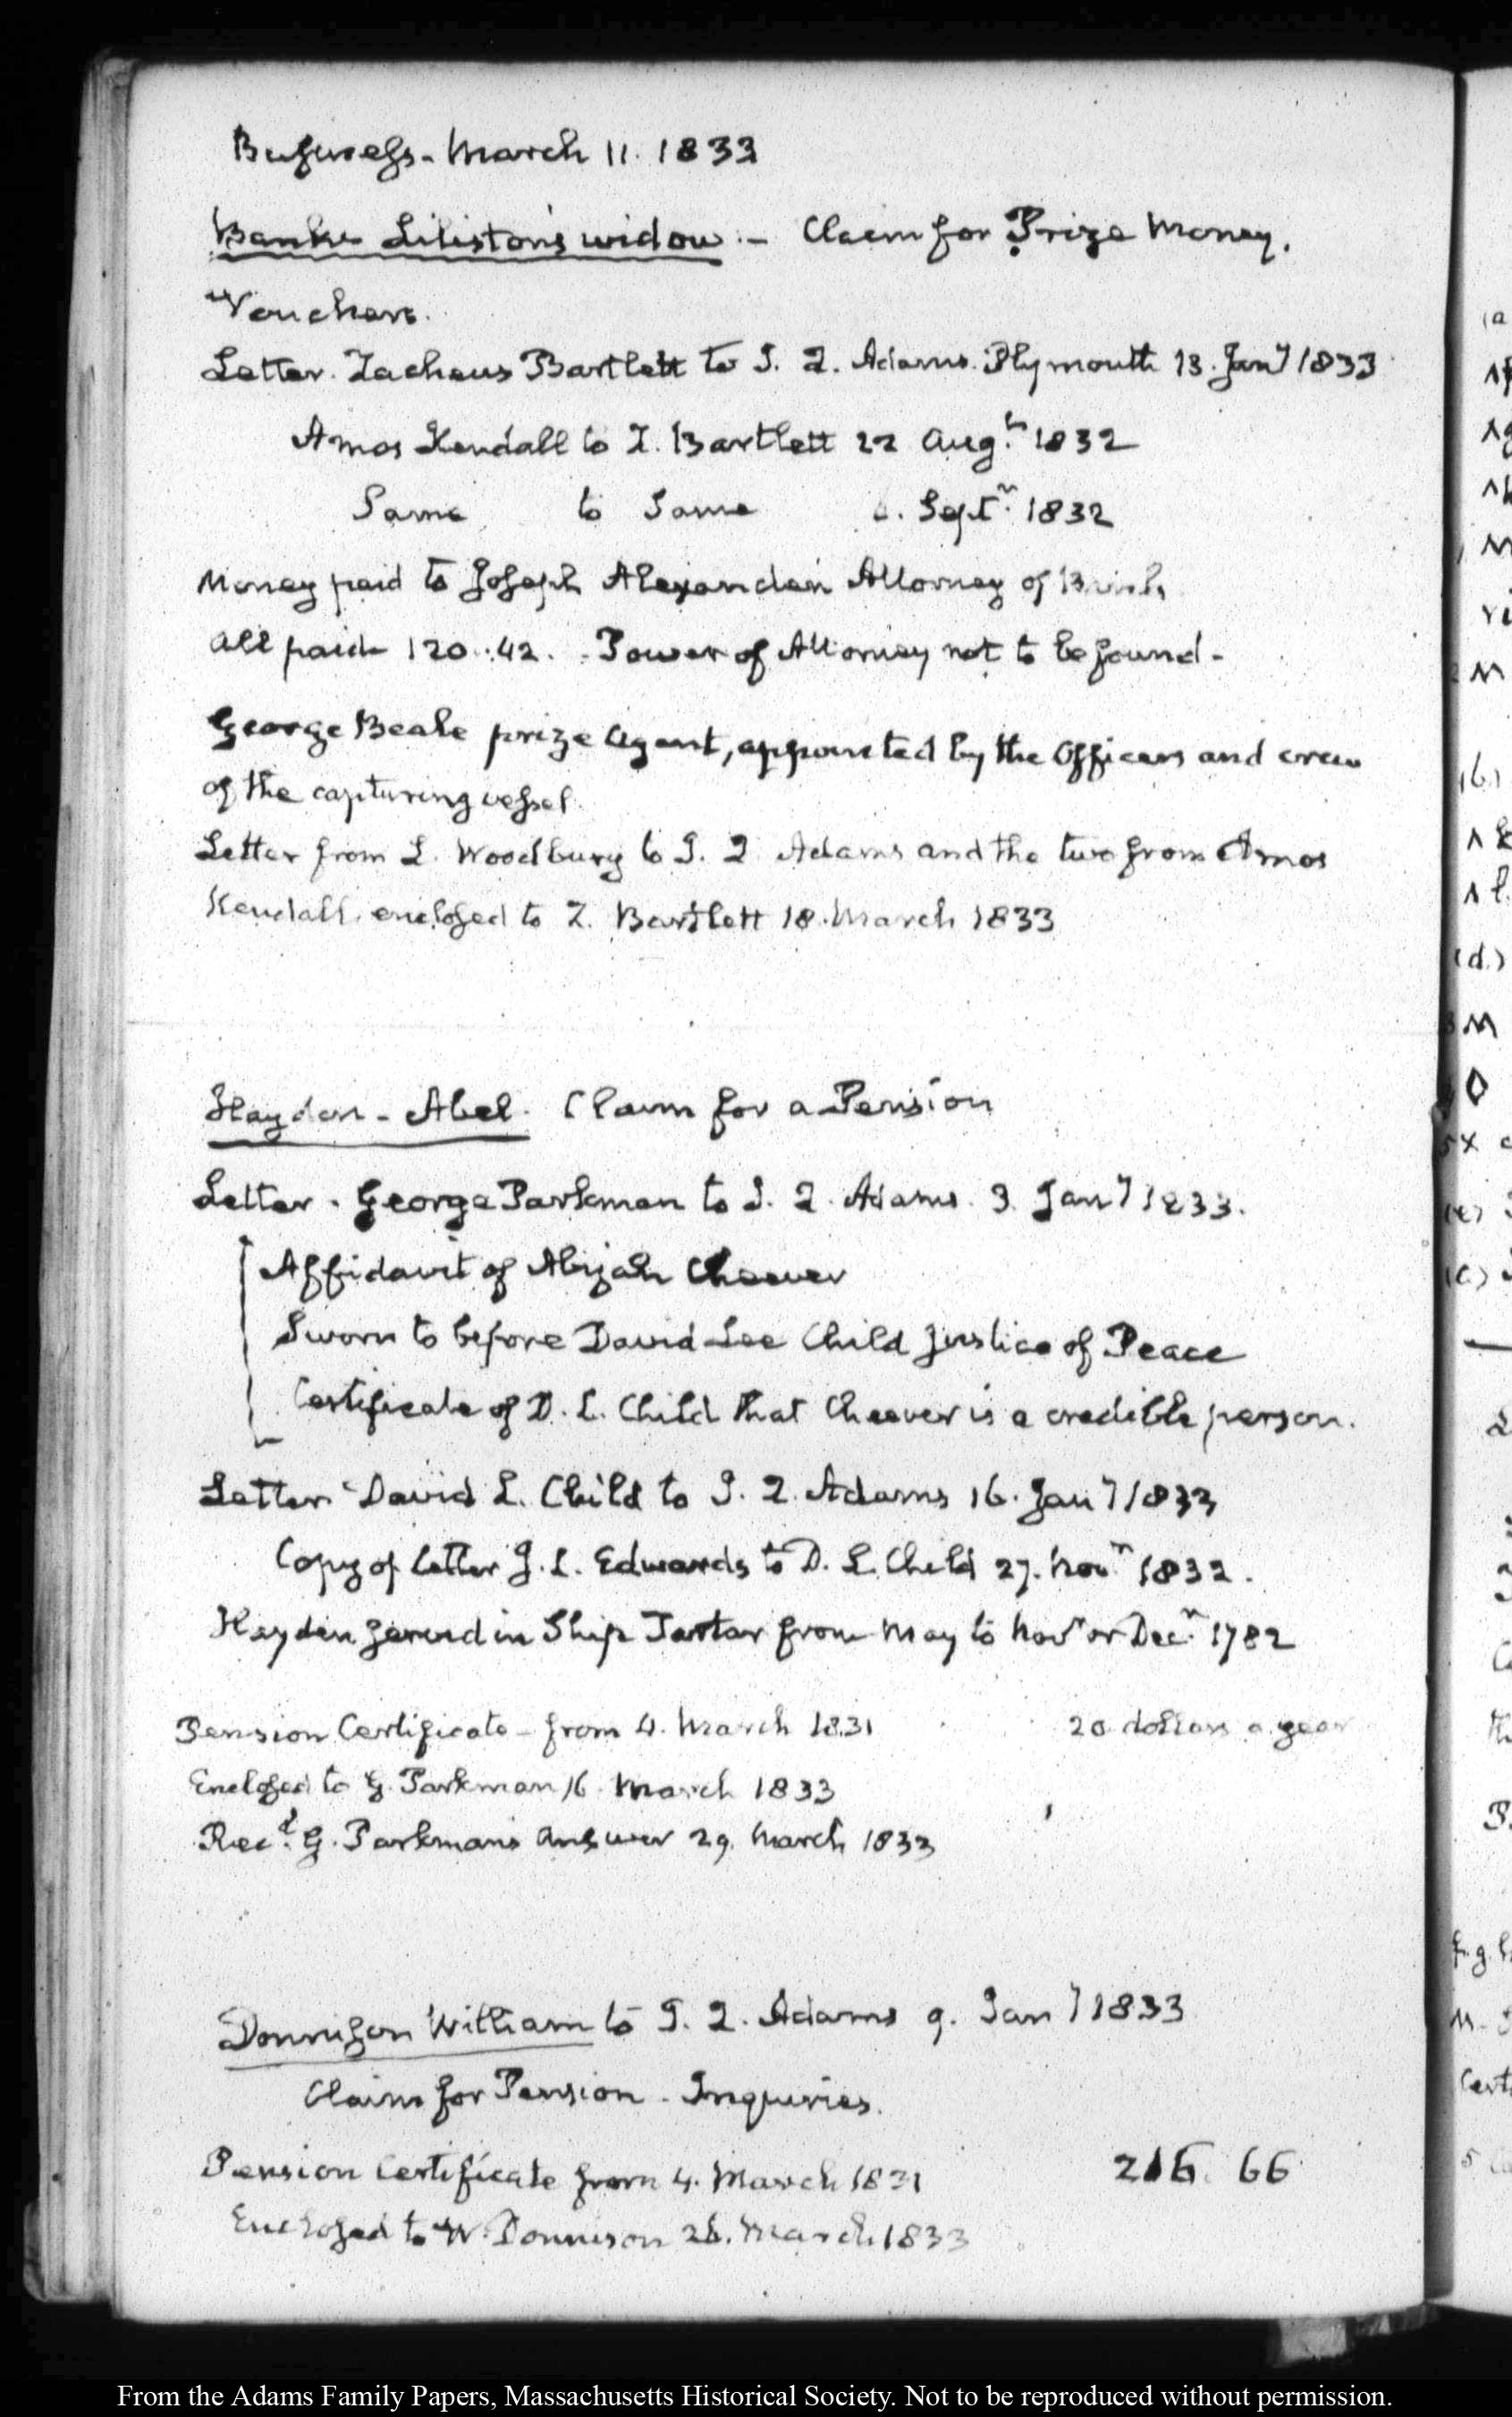 Business - March 11. 1833
Banke Lilliston's widow. - Claim for Prize Money.
Vouchers.
Letter. Zacheus Bartlett to J. Q. Adams. Plymouth 13. Jany 1833
Amos Kendall to Z. Bartlett 22 Augt. 1832
Same to Same Septr. 1832
Money paid to Joseph Alexander Attorney of
all paid 120..42. Power of Attorney not to be found -
George Beale prize agent, appointed by the Officers and crew
of the capturing vessel.
Letter from L. Woodbury to J. Q. Adams and the two from Amos
Kendall enclosed to Z. Bartlett 18. March 1833
Hayden - Abel. Claim for a Pension
Letter. George Parkman to J. Q. Adams. 3. Jany 1833.
Affidavit of Abijah Cheever
Sworn to before David Lee Child Justice of Peace
Certificate of D. L. Child that Cheever is a credible person.
Letter David L. Child to J. Q. Adams 16. Jany 1833
Copy of Letter J. L. Edwards to D. L. Child 27. Novr 1832.
Hayden served in Ship Tartar from May to Novr or Decr. 1782
Pension Certificate - from 4. March 1831 20 dollars a year
Enclosed to G. Parkman 16. March 1833
Recd. G. Parkman's answer 29. March 1833
Donnison William to J. Q. Adams 9. Jany 1833
Claim for Pension - Inquiries.
Pension Certificate from 4. March 1831 216. 66
Enclosed to W. Donnison 26. March 1833
From the Adams Family Papers, Massachusetts Historical Society. Not to be reproduced without permission.